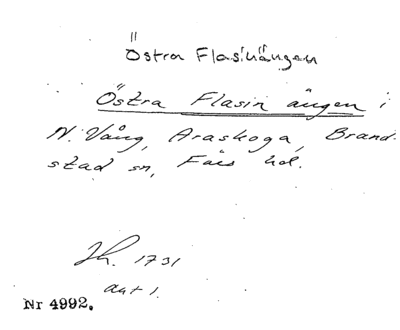 Östra Flasinängen
Östra Flasin ängen i
N. Vång, Araskoga, Brand-
stad sn, Färs hd.
Jh. 1731
akt 1.
Nr 4992.